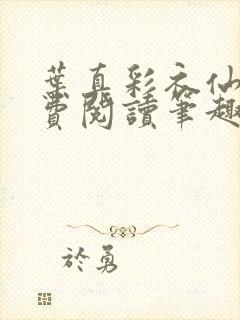 葉真彩衣仙
費閱讀筆趣
於勇